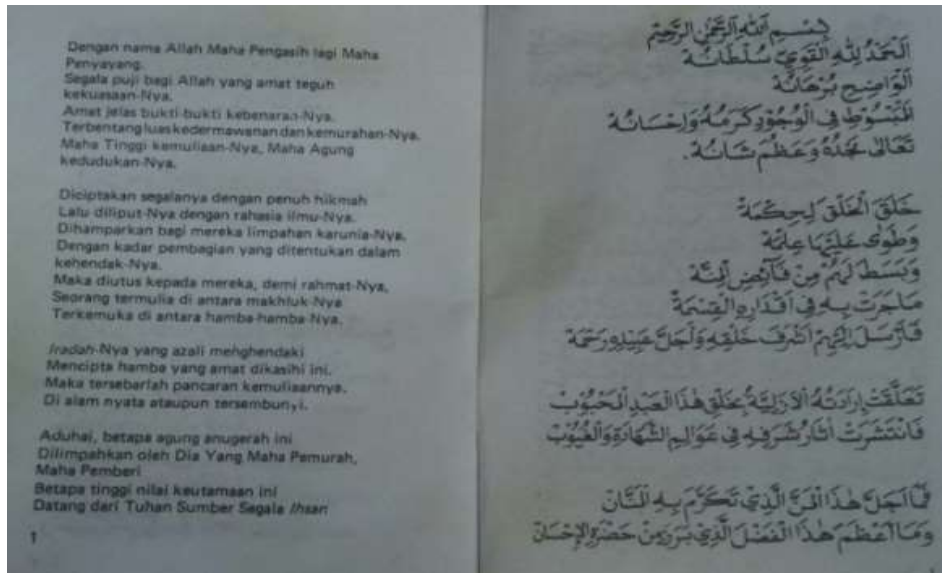 Dengan nama Allah Maha Pengasih lagi Maha
Penyayang.
Segala puji bagi Allah yang amat teguh
kekuasaan-Nya.
Amat jelas bukti-bukti kebenaran-Nya.
Terbentang luas kedermawanan dan kemurahan-Nya.
Maha Tinggi kemuliaan-Nya, Maha Agung
kedudukan-Nya.
Diciptakan segalanya dengan penuh hikmah
Lalu diliput-Nya dengan rahasia ilmu-Nya.
Dihamparkan bagi mereka limpahan karunia-Nya,
Dengan kadar pembagian yang ditentukan dalam
kehendak-Nya.
Maka diutus kepada mereka, demi rahmat-Nya,
Seorang termulia di antara makhluk-Nya
Terkemuka di antara hamba-hamba-Nya.
Iradah-Nya yang azali menghendaki
Mencipta hamba yang amat dikasihi ini.
Maka tersebarlah pancaran kemuliaannya.
Di alam nyata ataupun tersembunyi.
Aduhai, betapa agung anugerah ini
Dilimpahkan oleh Dia Yang Maha Pemurah,
Maha Pemberi
Betapa tinggi nilai keutamaan ini
Datang dari Tuhan Sumber Segala Ihsan
1
بِسْمِ اللهِ الرَّحْمٰنِ الرَّحِيْمِ
اَلْحَمْدُ لِلّٰهِ الْقَوِيِّ سُلْطَانُهْ
اَلْوَاضِحِ بُرْهَانُهْ
اَلْمَبْسُوْطِ فِى الْوُجُوْدِ كَرَمُهُ وَاِحْسَانُهْ
تَعَالٰى مَجْدُهُ وَعَظُمَ شَانُهْ.
خَلَقَ الْخَلْقَ لِحِكْمَهْ
وَطَوٰى عَلَيْهَا عِلْمَهْ
وَبَسَطَ لَهُمْ مِنْ فَآئِضِ الْمِنَّهْ
مَاجَرَتْ بِهِ فِى اَقْدَارِهِ الْقِسْمَهْ
فَاَرْسَلَ اِلَيْهِمْ اَشْرَفَ خَلْقِهِ وَاَجَلَّ عَبِيْدِهِ رَحْمَهْ
تَعَلَّقَتْ اِرَادَتُهُ الْاَزَلِيَّةُ بِخَلْقِ هٰذَا الْعَبْدِ الْمَحْبُوْبْ
فَانْتَشَرَتْ اٰثَارُ شَرَفِهِ فِى عَوَالِمِ الشَّهَادَةِ وَالْغُيُوْبْ
فَمَا اَجَلَّ هٰذَا الْمَنَّ الَّذِيْ تَكَرَّمَ بِهِ الْمَنَّانْ
وَمَا اَعْظَمَ هٰذَا الْفَضْلَ الَّذِيْ بَرَزَ مِنْ حَضْرَةِ الْاِحْسَانْ